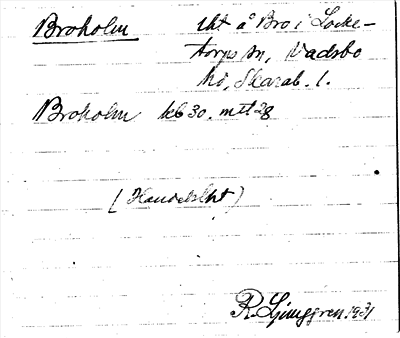 Broholm lht å Bro i Locke-
torps sn, Vadsbo
hd, Skarab. l.
Broholm kb 30. mtl 28
(Handelslht)
R. Ljunggren 1931